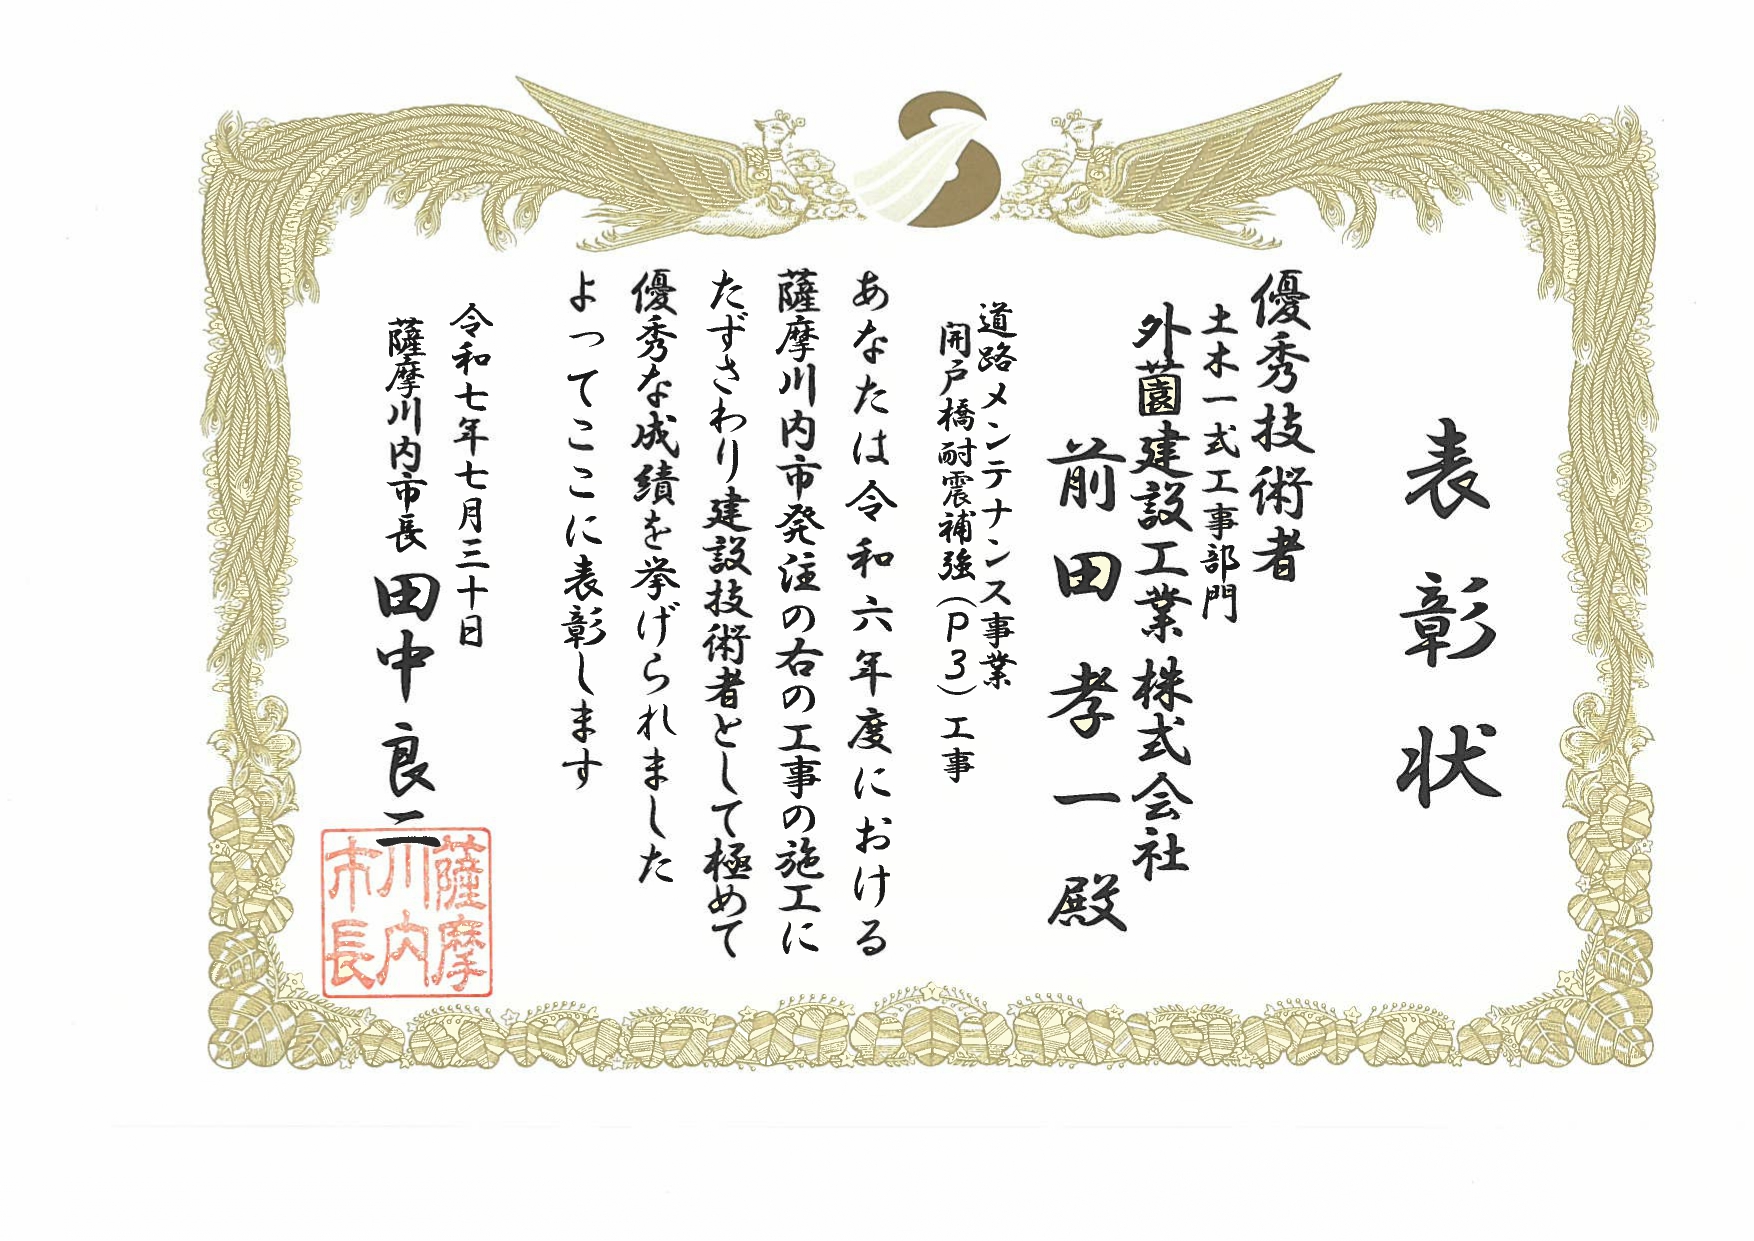 表彰状
優秀技術者
土木一式工事部門
外薗建設工業株式会社
前田孝一殿
道路メンテナンス事業
開戸橋耐震補強(P3)工事
あなたは令和六年度における
薩摩川内市発注の右の工事の施工に
たずさわり建設技術者として極めて
優秀な成績を挙げられました
よってここに表彰します
令和七年七月三十日
薩摩川内市長 田中良二
薩摩
川内
市長